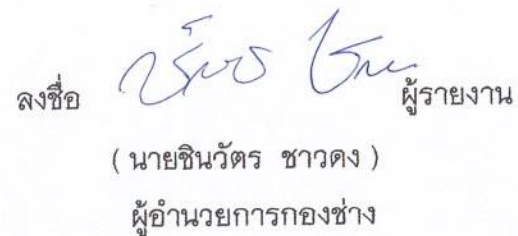 ลงชื่อ ผู้รายงาน
( นายชินวัตร ชาวดง )
ผู้อำนวยการกองช่าง